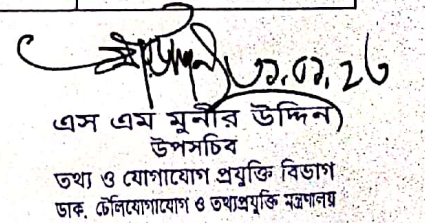 ৩১.০১.২৬
এস এম মুনীর উদ্দিন
উপসচিব
তথ্য ও যোগাযোগ প্রযুক্তি বিভাগ
ডাক, টেলিযোগাযোগ ও তথ্যপ্রযুক্তি মন্ত্রণালয়